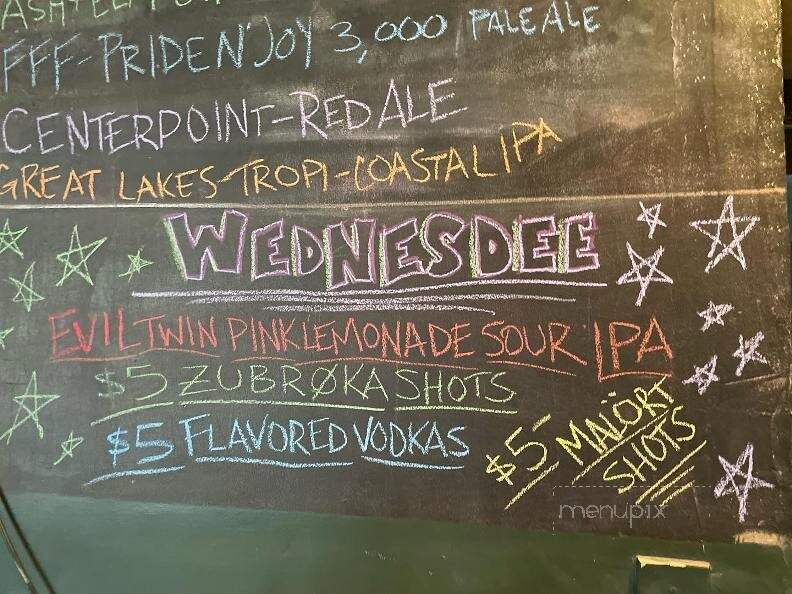 FFF-PRIDEN'JOY 3,000 PALE ALE
CENTERPOINT-RED ALE
GREAT LAKES-TROPI-COASTAL IPA
WEDNESDEE
EVIL TWIN PINK LEMONADE SOUR IPA
$5 ZUBRØKA SHOTS
$5 FLAVORED VODKAS
$5 MALÖRT
SHOTS
menupix